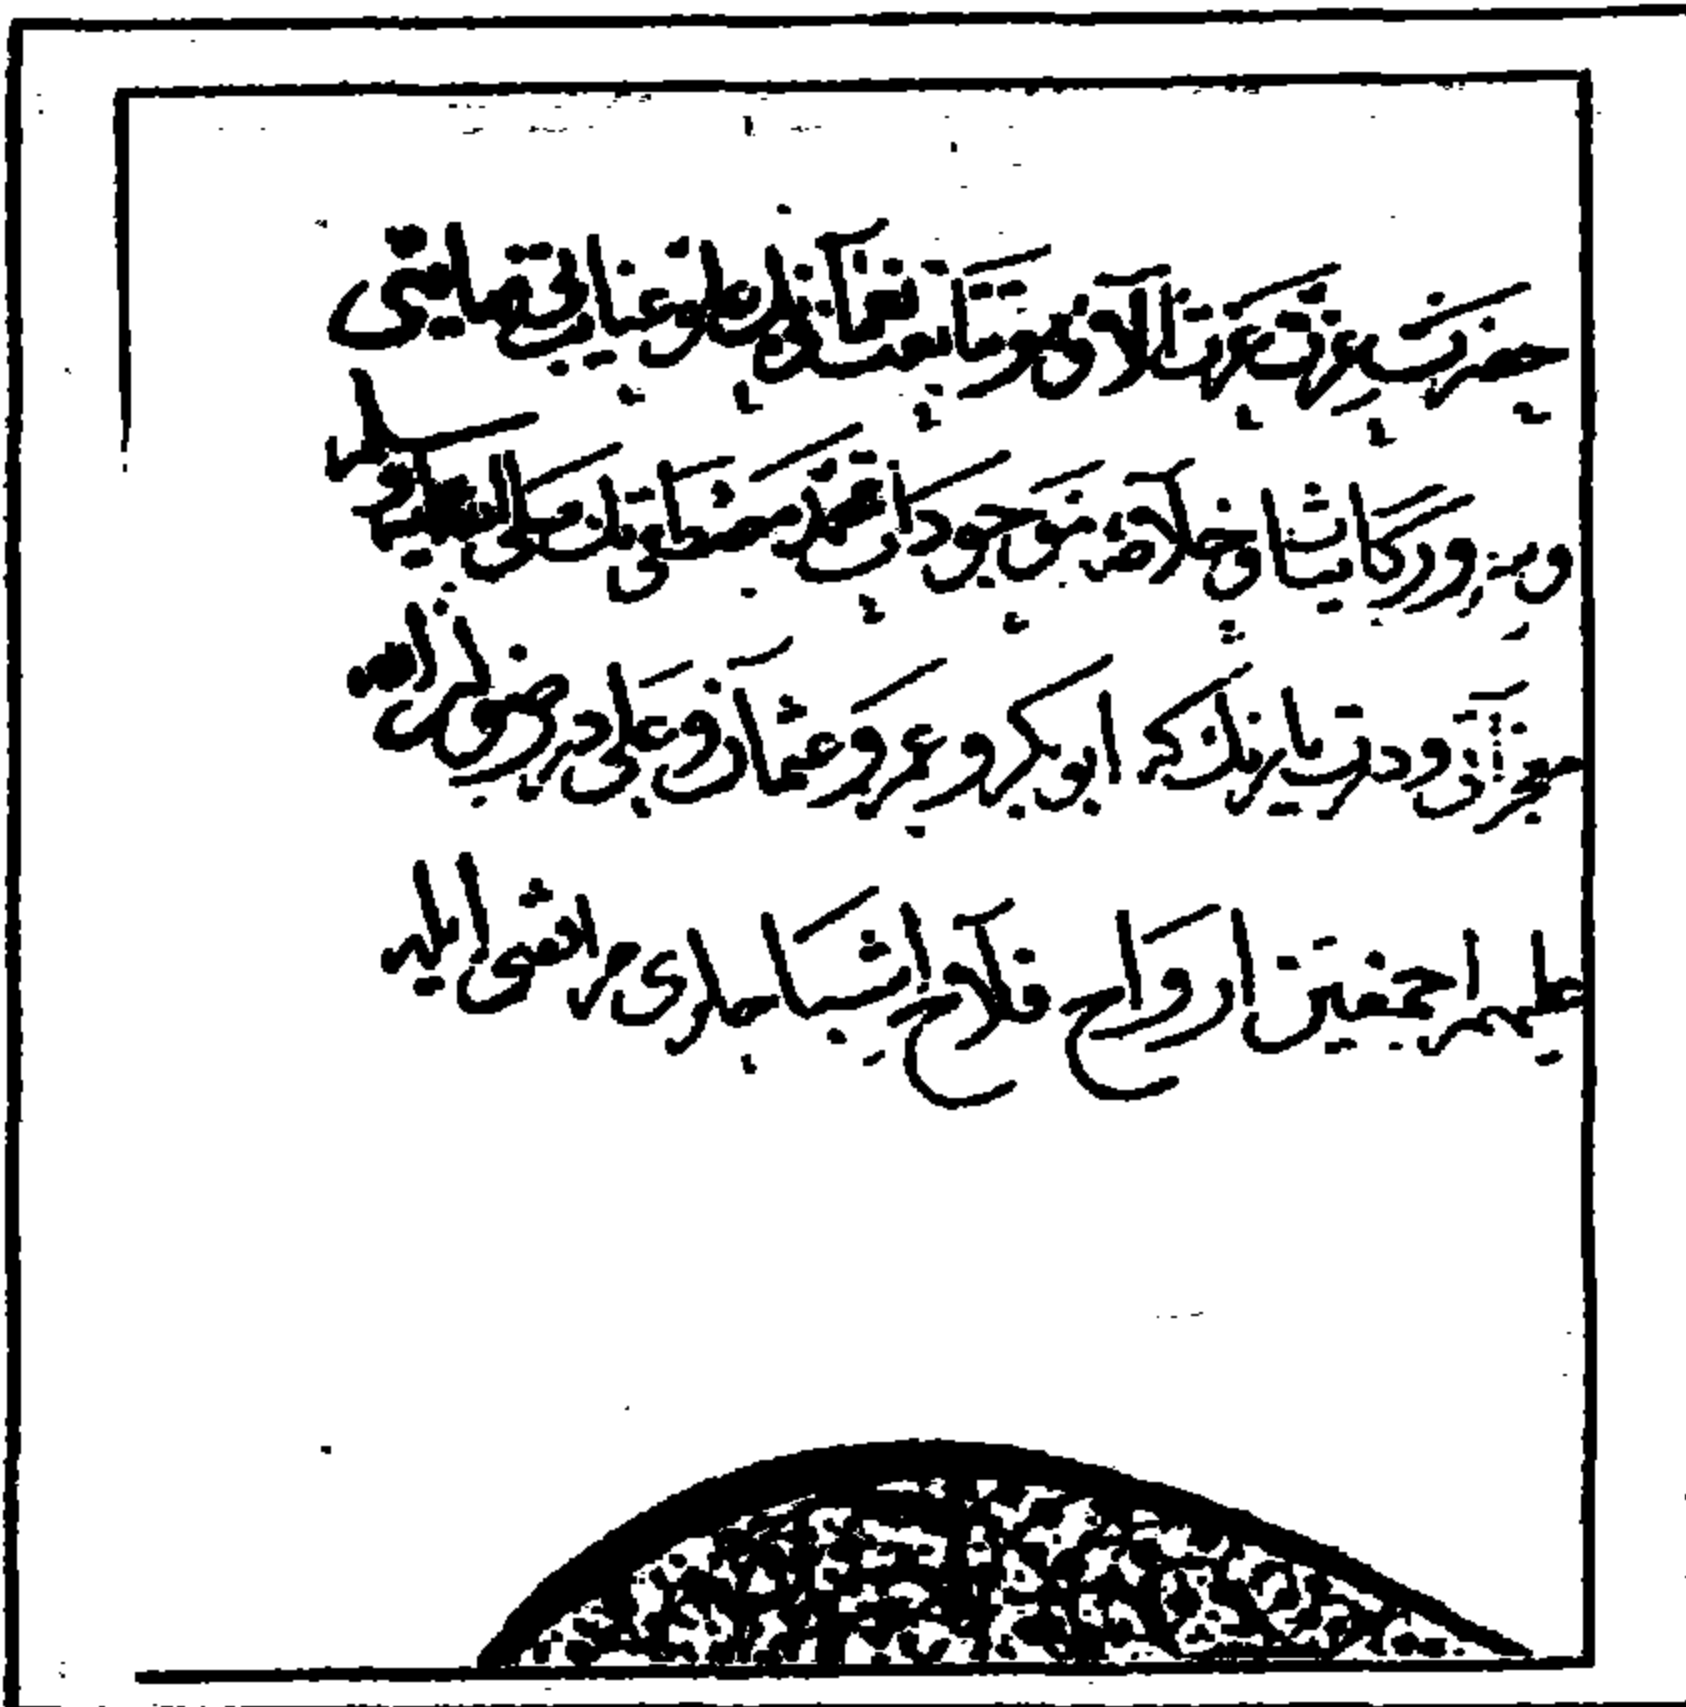 حضرت عزت عزت آلاؤه وتتابعت نعماؤنك علو عنايتى قمايتى
وبرورگايشا وخلاصهٔ موجودات محمد مصطفى نك صلى الله عليه وسلم
معجزاتى ودرت يارنك كه ابوبكر وعمر وعثمان وعلى در رضوان الله
عليهم اجمعين ارواح فلاح اشباحلرى مرافقتى ايله